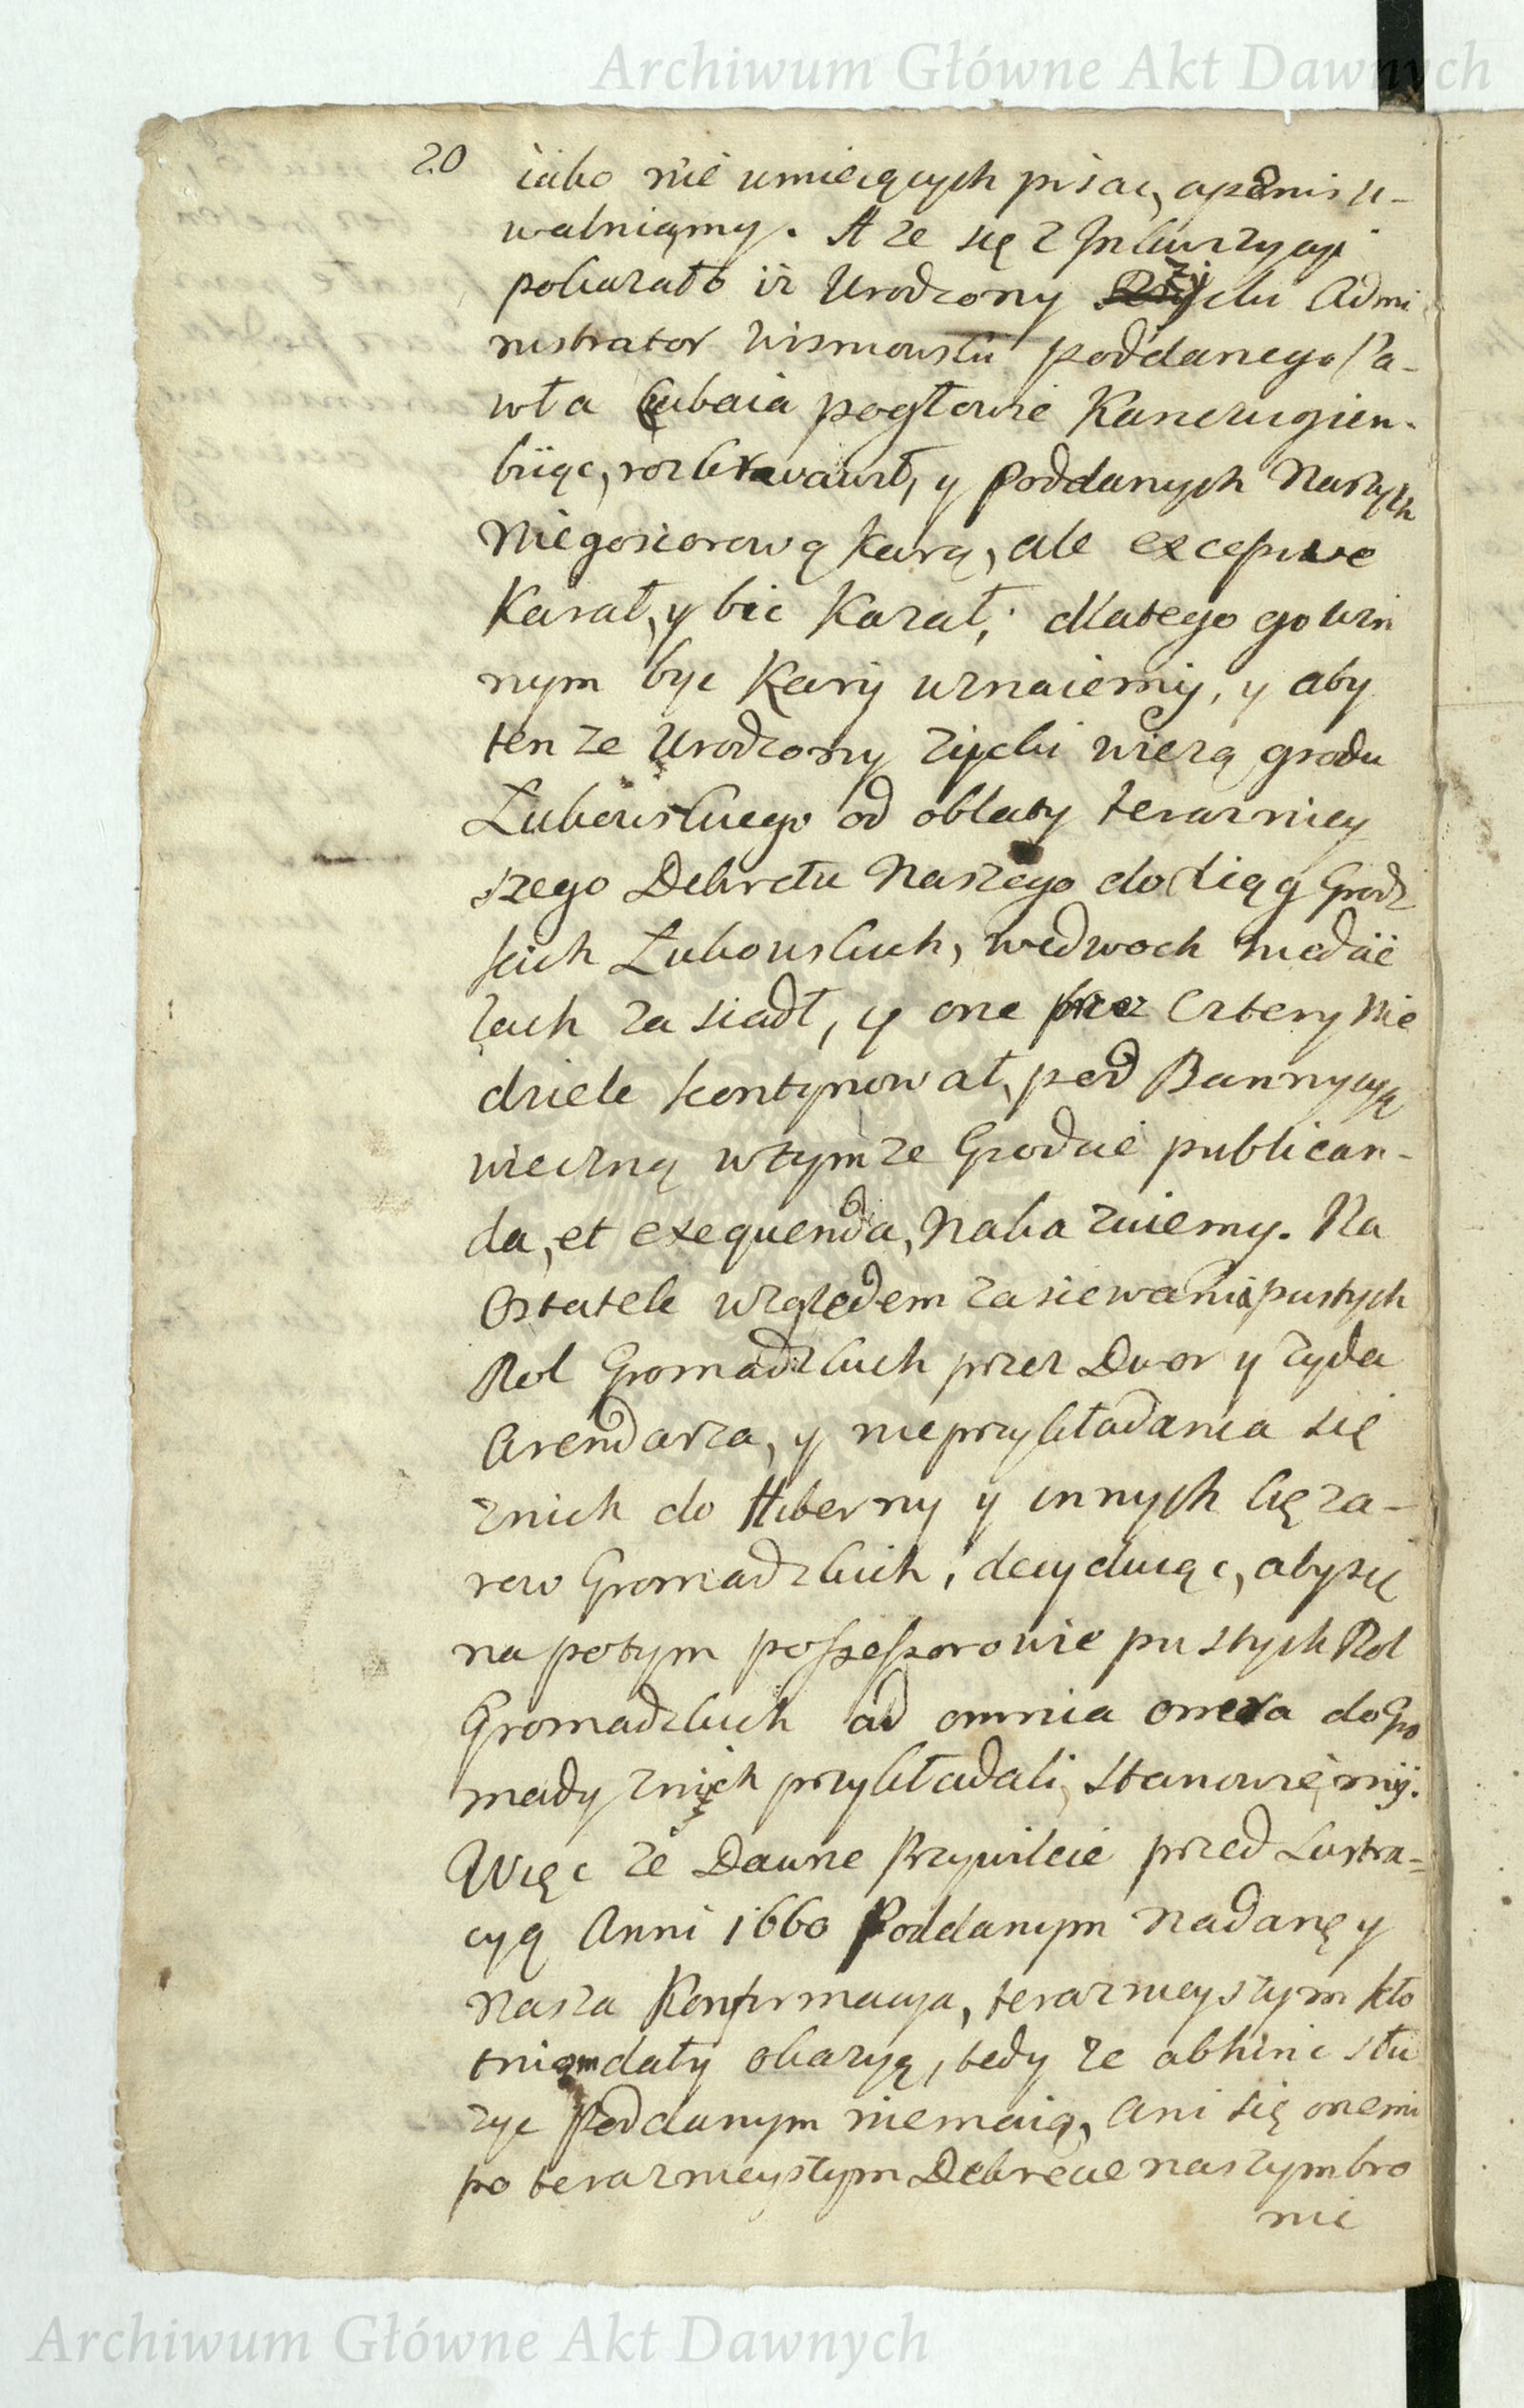 Archiwum Główne Akt Dawnych
20
iako nie umieiących pisac, apenis u-
walniąmy. A ze się z Inkwizycyi
pokazało iż Urodzony Zijcki Admi
nistrator Wismowski poddanego Pa-
wła Cubaia pogłowie Kanczugiem
biiąc, rozkrwawił, y Poddanych Naszych
Niegosciorową karą, ale excepive
Karał, y bic Kazał; dlatego go win
nym byc Kary uznaiemy, y aby
ten ze Urodzony Zijcki wiezą grodu
Łukowskiego od oblaty terazniey
szego Dekretu Naszego do Xiąg Grodz
kich Łukowskich, wedwoch niedzie
lach zasiadł, y one przez Cztery Nie
dziele kontynował, pod Bannycyą
wieczną wtymze Grodzie publican-
da, et exequenda, Nakazuiemy. Na
Ostatek względem zasiewania pustych
Rol Gromadzkich przez Dwor y Zyda
Arendarza, y nieprzykładania się
znich do Hiberny y innych Cięza-
row Gromadzkich, decyduiąc, aby się
napotym possessorowie pustych Rol
Gromadzkich ad omnia onera do Gro
mady znich przykładali, stanowiemy.
Więc ze Dawne Przywileie przed Lustra-
cyą Anni 1660 Poddanym Nadane y
Nasza Konfirmacya, teraznieyszym kło
tniom dały okazyą, tedy ze abhinc słu
zyc Poddanym niemaią, Ani się onemi
po teraznieyszym Dekrecie naszym bro
nic
Archiwum Główne Akt Dawnych